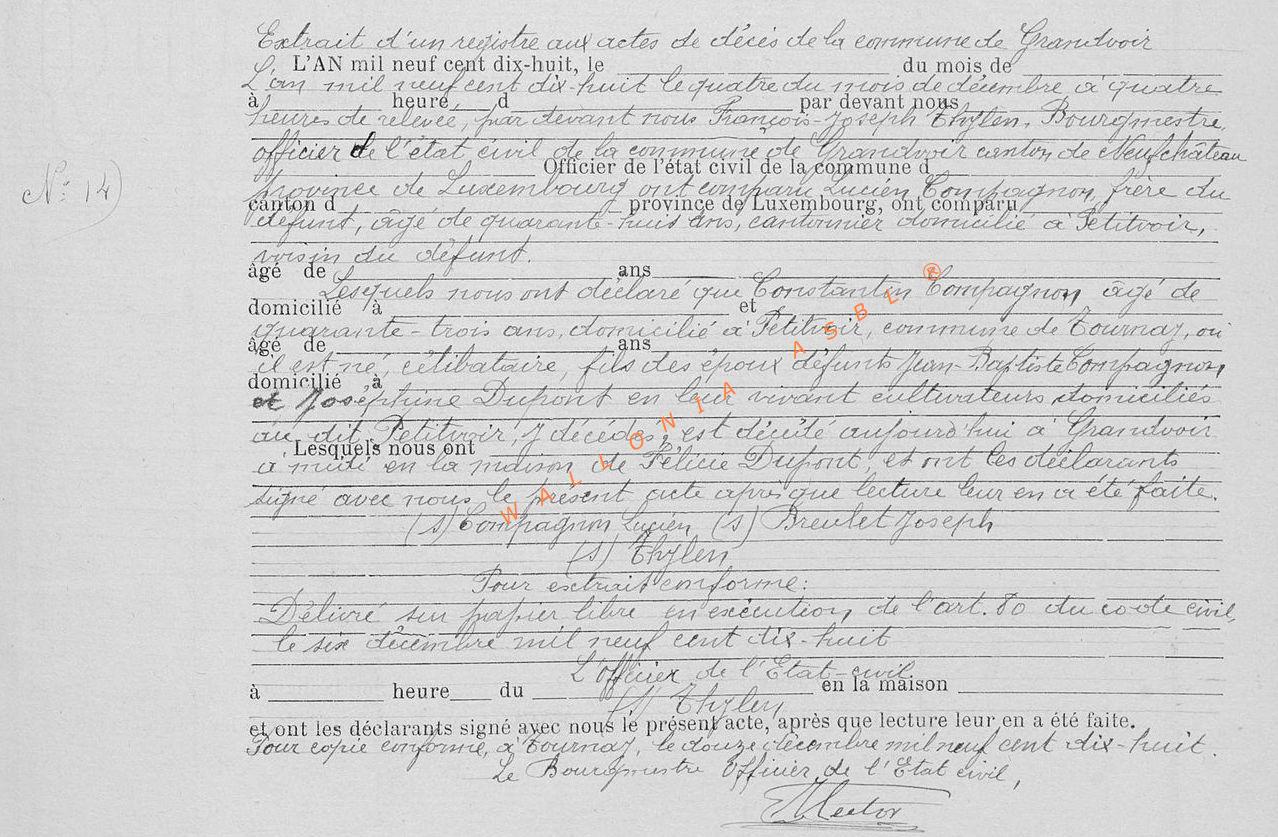 Extrait d'un registre aux actes de décès de la commune de Grandvoir
L'AN mil neuf cent dix-huit, le du mois de
L'an mil neuf cent dix-huit le quatre du mois de décembre à quatre
à heure d par devant nous
heures de relevée, par devant nous François-Joseph Thylen, Bourgmestre,
officier de l'état civil de la commune de Grandvoir canton de Neufchâteau
Officier de l'état civil de la commune d
N° 14)
province de Luxembourg ont comparu Lucien Compagnon, frère du
canton d province de Luxembourg, ont comparu
défunt, âgé de quarante-huit ans, cantonnier domicilié à Petitvoir,
voisin du défunt.
âgé de ans
Lesquels nous ont déclaré que Constantin Compagnon âgé de
domicilié à et
quarante-trois ans, domicilié à Petitvoir, commune de Tournay, où
âgé de ans
il est né, célibataire, fils des époux défunts Jean-Baptiste Compagnon
domicilié à
et Joséphine Dupont en leur vivant cultivateurs domiciliés
au dit Petitvoir, y décédés, est décédé aujourd'hui à Grandvoir
Lesquels nous ont
à midi en la maison de Félicie Dupont, et ont les déclarants
signé avec nous le présent acte après que lecture leur en a été faite.
(s) Compagnon Lucien (s) Breulet Joseph
(s) Thylen
Pour extrait conforme:
Délivré sur papier libre en exécution de l'art. 80 du code civil,
le six décembre mil neuf cent dix-huit
L'officier de l'Etat-civil
à heure du en la maison
(s) Thylen
et ont les déclarants signé avec nous le présent acte, après que lecture leur en a été faite.
Pour copie conforme, à Tournay, le douze décembre mil neuf cent dix-huit.
Le Bourgmestre Officier de l'Etat civil,
WALLONIA ASBL ®